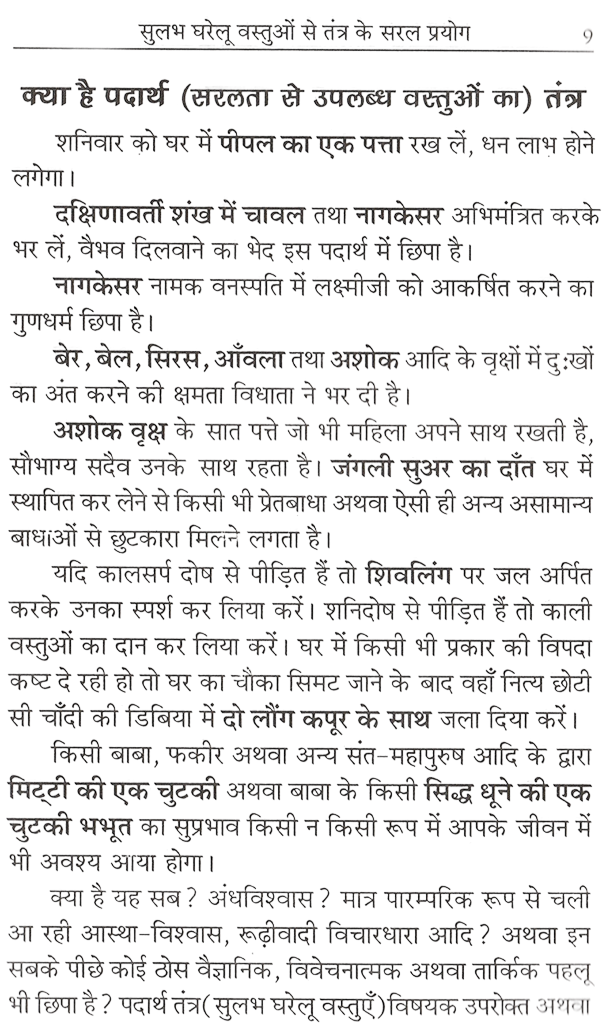 सुलभ घरेलू वस्तुओं से तंत्र के सरल प्रयोग 9
क्या है पदार्थ (सरलता से उपलब्ध वस्तुओं का) तंत्र
शनिवार को घर में पीपल का एक पत्ता रख लें, धन लाभ होने
लगेगा।
दक्षिणावर्ती शंख में चावल तथा नागकेसर अभिमंत्रित करके
भर लें, वैभव दिलवाने का भेद इस पदार्थ में छिपा है।
नागकेसर नामक वनस्पति में लक्ष्मीजी को आकर्षित करने का
गुणधर्म छिपा है।
बेर, बेल, सिरस, आँवला तथा अशोक आदि के वृक्षों में दुःखों
का अंत करने की क्षमता विधाता ने भर दी है।
अशोक वृक्ष के सात पत्ते जो भी महिला अपने साथ रखती है,
सौभाग्य सदैव उनके साथ रहता है। जंगली सुअर का दाँत घर में
स्थापित कर लेने से किसी भी प्रेतबाधा अथवा ऐसी ही अन्य असामान्य
बाधाओं से छुटकारा मिलने लगता है।
यदि कालसर्प दोष से पीड़ित हैं तो शिवलिंग पर जल अर्पित
करके उनका स्पर्श कर लिया करें। शनिदोष से पीड़ित हैं तो काली
वस्तुओं का दान कर लिया करें। घर में किसी भी प्रकार की विपदा
कष्ट दे रही हो तो घर का चौका सिमट जाने के बाद वहाँ नित्य छोटी
सी चाँदी की डिबिया में दो लौंग कपूर के साथ जला दिया करें।
किसी बाबा, फकीर अथवा अन्य संत-महापुरुष आदि के द्वारा
मिट्टी की एक चुटकी अथवा बाबा के किसी सिद्ध धूने की एक
चुटकी भभूत का सुप्रभाव किसी न किसी रूप में आपके जीवन में
भी अवश्य आया होगा।
क्या है यह सब? अंधविश्वास? मात्र पारम्परिक रूप से चली
आ रही आस्था-विश्वास, रूढ़ीवादी विचारधारा आदि? अथवा इन
सबके पीछे कोई ठोस वैज्ञानिक, विवेचनात्मक अथवा तार्किक पहलू
भी छिपा है? पदार्थ तंत्र(सुलभ घरेलू वस्तुएँ)विषयक उपरोक्त अथवा